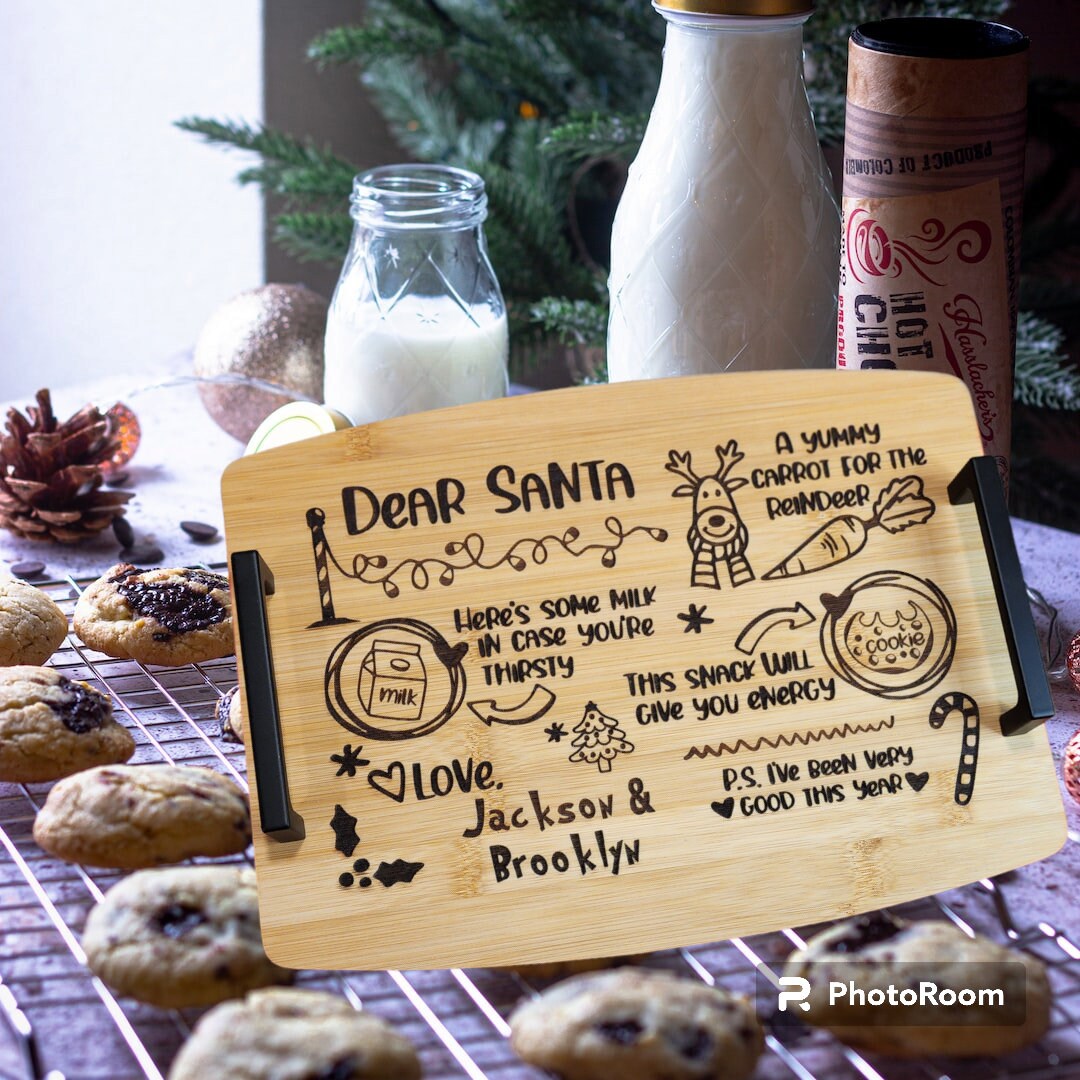 PRODUCT OF COLOMBIA
HOT
Hasslacher's
DEAR SANTA
A YUMMY
CARROT FOR THE
REINDEER
HERE'S SOME MILK
IN CASE YOU'RE
THIRSTY
milk
cookie
THIS SNACK WILL
GIVE YOU ENERGY
LOVE,
Jackson &
Brooklyn
P.S. I'VE BEEN VERY
GOOD THIS YEAR
PhotoRoom